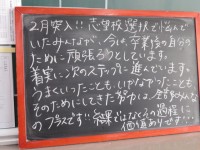 2月突入!! 志望校選択で悩んで
いたみんなが、今は、卒業後の自分の
ために頑張ろうとしています。
着実に次のステップに進んでいます。
うまくいったことも、いやなかったことも
そのためにしてきた努力は、全員の
のプラスです!! 結果ではなくその過程に
価値ありです…